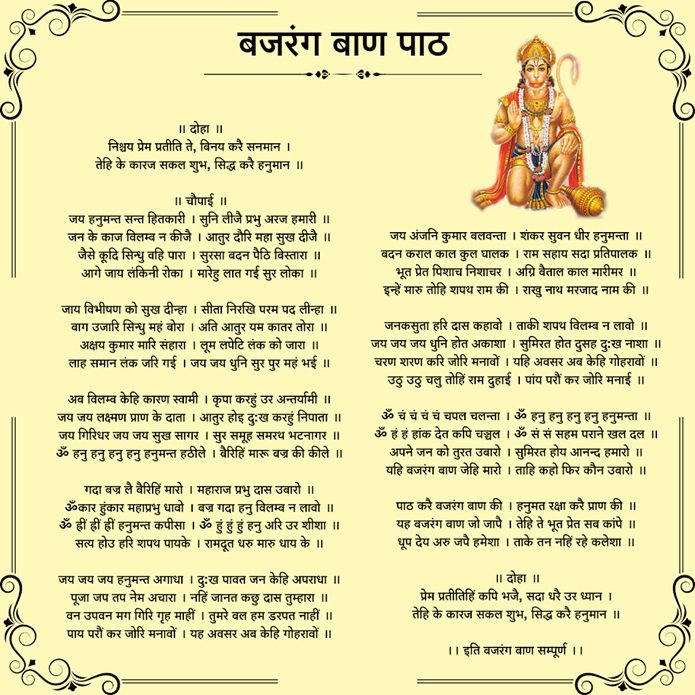 बजरंग बाण पाठ
॥ दोहा ॥
निश्चय प्रेम प्रतीति ते, बिनय करै सनमान ।
तेहि के कारज सकल शुभ, सिद्ध करै हनुमान ॥
॥ चौपाई ॥
जय हनुमन्त सन्त हितकारी । सुनि लीजै प्रभु अरज हमारी ॥
जन के काज विलम्ब न कीजै । आतुर दौरि महा सुख दीजै ॥
जैसे कूदि सिन्धु वहि पारा । सुरसा बदन पैठि बिस्तारा ॥
आगे जाय लंकिनी रोका । मारेहु लात गई सुर लोका ॥
जाय विभीषण को सुख दीन्हा । सीता निरखि परम पद लीन्हा ॥
बाग उजारि सिन्धु महं बोरा । अति आतुर यम कातर तोरा ॥
अक्षय कुमार मारि संहारा । लूम लपेटि लंक को जारा ॥
लाह समान लंक जरि गई । जय जय धुनि सुर पुर महं भई ॥
अब विलम्ब केहि कारण स्वामी । कृपा करहुं उर अन्तर्यामी ॥
जय जय लक्ष्मण प्राण के दाता । आतुर होइ दुःख करहुं निपाता ॥
जय गिरिधर जय जय सुख सागर । सुर समूह समरथ भटनागर ॥
ॐ हनु हनु हनु हनु हनुमन्त हठीले । वैरिहिं मारू वज्र की कीले ॥
गदा बज्र लै बैरिहिं मारो । महाराज प्रभु दास उबारो ॥
ॐकार हुंकार महाप्रभु धावो । बज्र गदा हनु विलम्ब न लावो ॥
ॐ ह्रीं ह्रीं ह्रीं हनुमन्त कपीसा । ॐ हुं हुं हुं हनु अरि उर शीशा ॥
सत्य होउ हरि शपथ पायके । रामदूत धरु मारु धाय के ॥
जय जय जय हनुमन्त अगाधा । दुःख पावत जन केहि अपराधा ॥
पूजा जप तप नेम अचारा । नहिं जानत कछु दास तुम्हारा ॥
वन उपवन मग गिरि गृह माहीं । तुमरे बल हम डरपत नाहीं ॥
पाय परौं कर जोरि मनावों । यह अवसर अब केहि गोहरावों ॥
जय अंजनि कुमार बलवन्ता । शंकर सुवन धीर हनुमन्ता ॥
बदन कराल काल कुल घालक । राम सहाय सदा प्रतिपालक ॥
भूत प्रेत पिशाच निशाचर । अग्नि वैताल काल मारीमर ॥
इन्हें मारु तोहि शपथ राम की । राखु नाथ मरजाद नाम की ॥
जनकसुता हरि दास कहावो । ताकी शपथ विलम्ब न लावो ॥
जय जय जय धुनि होत अकाशा । सुमिरत होत दुसह दुःख नाशा ॥
चरण शरण करि जोरि मनावों । यहि अवसर अब केहि गोहरावों ॥
उठु उठु चलु तोहिं राम दुहाई । पांय परौं कर जोरि मनाई ॥
ॐ चं चं चं चं चपल चलन्ता । ॐ हनु हनु हनु हनु हनुमन्ता ॥
ॐ हं हं हांक देत कपि चञ्चल । ॐ सं सं सहम पराने खल दल ॥
अपने जन को तुरत उबारो । सुमिरत होय आनन्द हमारो ॥
यहि बजरंग बाण जेहि मारो । ताहि कहो फिर कौन उबारो ॥
पाठ करै बजरंग बाण की । हनुमत रक्षा करै प्राण की ॥
यह बजरंग बाण जो जापै । तेहि ते भूत प्रेत सब कांपे ॥
धूप देय अरु जपै हमेशा । ताके तन नहिं रहे कलेशा ॥
॥ दोहा ॥
प्रेम प्रतीतिहिं कपि भजै, सदा धरै उर ध्यान ।
तेहि के कारज सकल शुभ, सिद्ध करै हनुमान ॥
।। इति बजरंग बाण सम्पूर्ण ।।